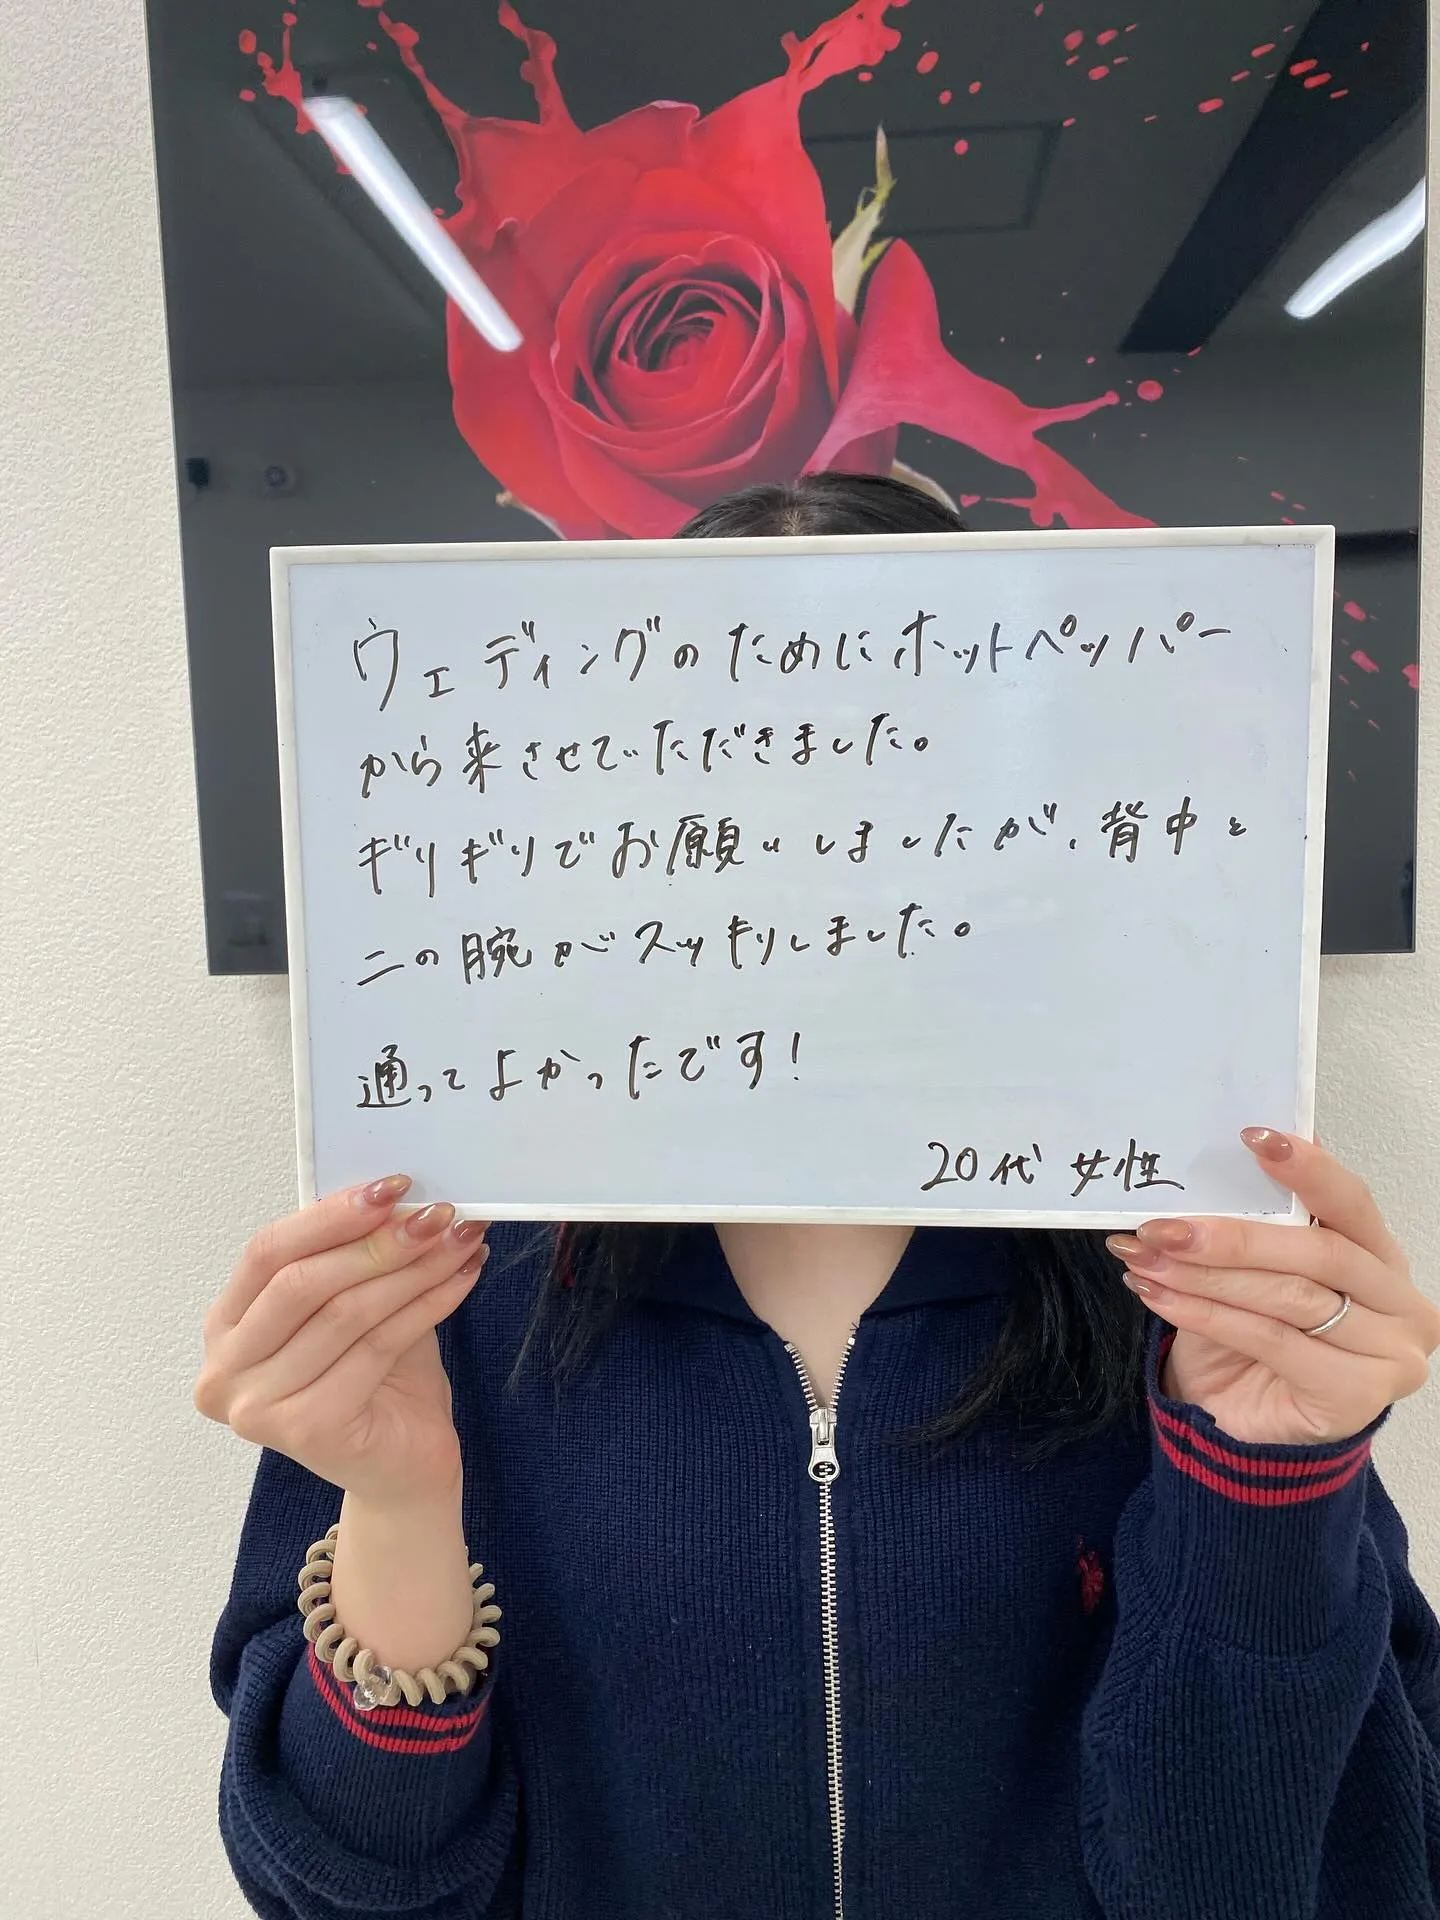 ウェディングのためにホットペッパー
から来させていただきました。
ギリギリでお願いしましたが、背中と
二の腕がスッキリしました。
通ってよかったです!
20代 女性